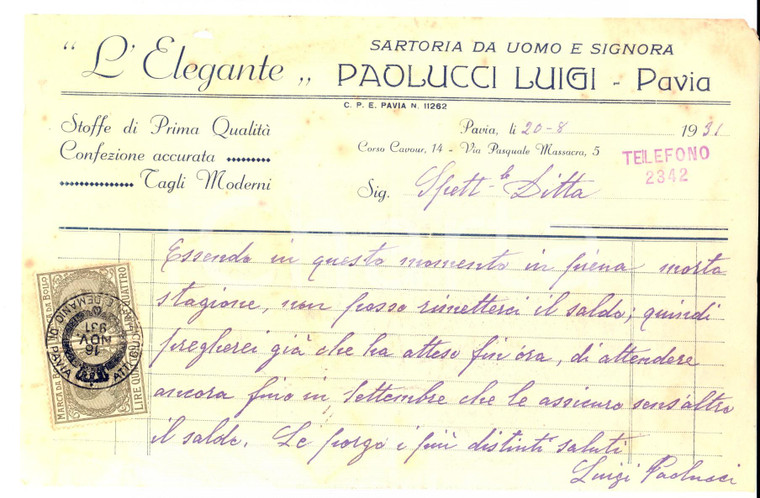 "L'Elegante„
SARTORIA DA UOMO E SIGNORA
PAOLUCCI LUIGI - Pavia
C. P. E. PAVIA N. 11262
Stoffe di Prima Qualità
Confezione accurata
Tagli Moderni
Pavia, li 20-8 1931
Corso Cavour, 14 - Via Pasquale Massacra, 5
TELEFONO
2342
Sig. Spett-le Ditta
Essendo in questo momento in piena morta
stagione, non posso rimetterci il saldo; quindi
pregherei già che ha atteso fin'ora, di attendere
ancora fino in Settembre che le assicuro sens'altro
il saldo. Le porgo i più distinti saluti
Luigi Paolucci
MARCA DA BOLLO
LIRE QUATTRO
MARCA DA BOLLO
QUATTRO
16
NOV.
931
PAVIA
DEMANIO